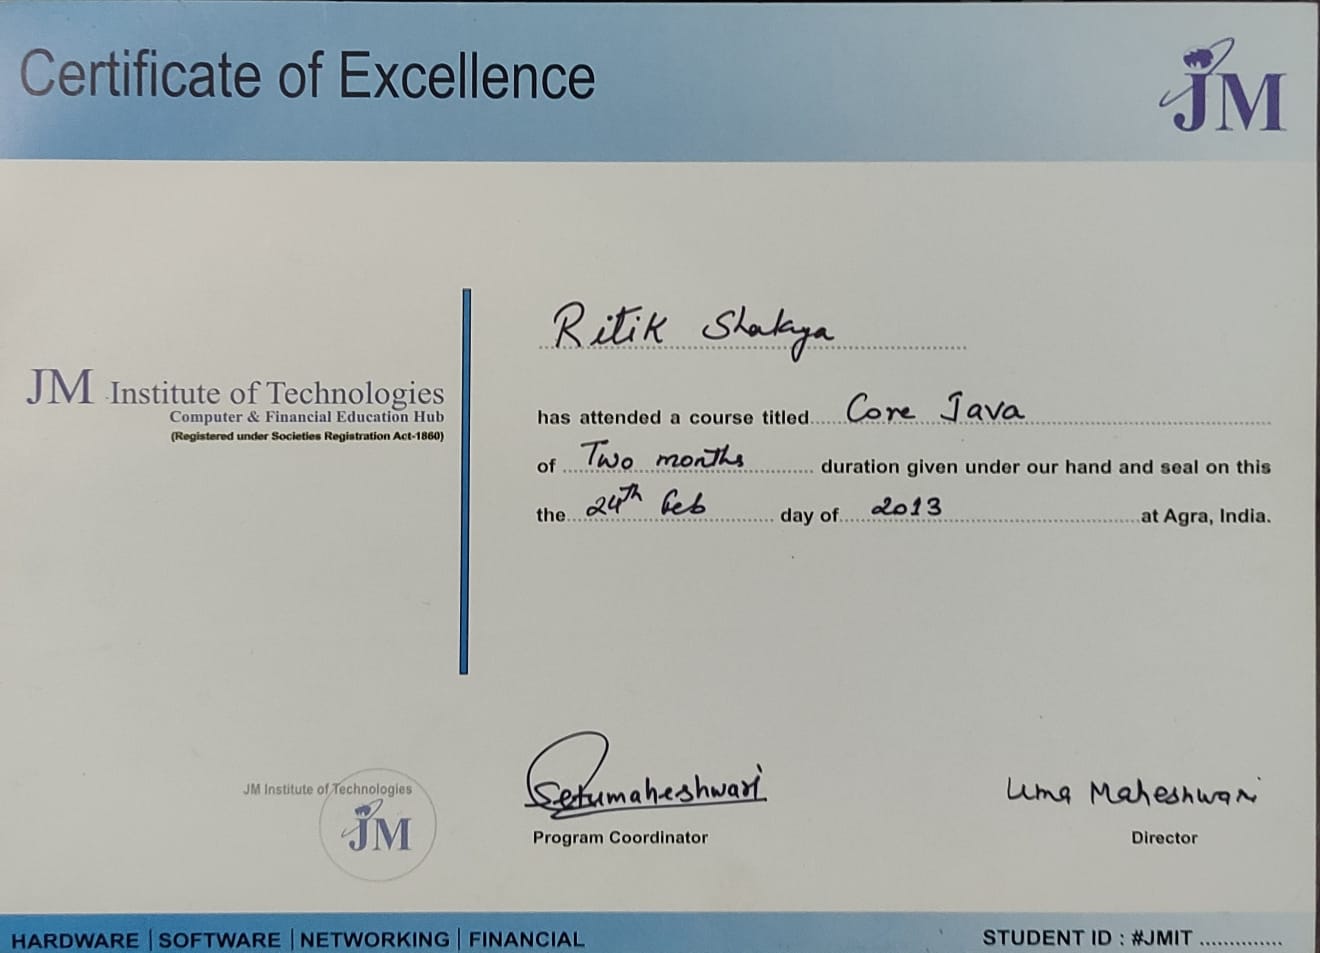 Certificate of Excellence
JM
Ritik Shakya
JM Institute of Technologies
Computer & Financial Education Hub
(Registered under Societies Registration Act-1860)
has attended a course titled Core Java
of Two months duration given under our hand and seal on this
the 24th Feb day of 2013 at Agra, India.
JM Institute of Technologies
JM
Setumaheshwari
Program Coordinator
Uma Maheshwari
Director
HARDWARE | SOFTWARE | NETWORKING | FINANCIAL
STUDENT ID : #JMIT ..............